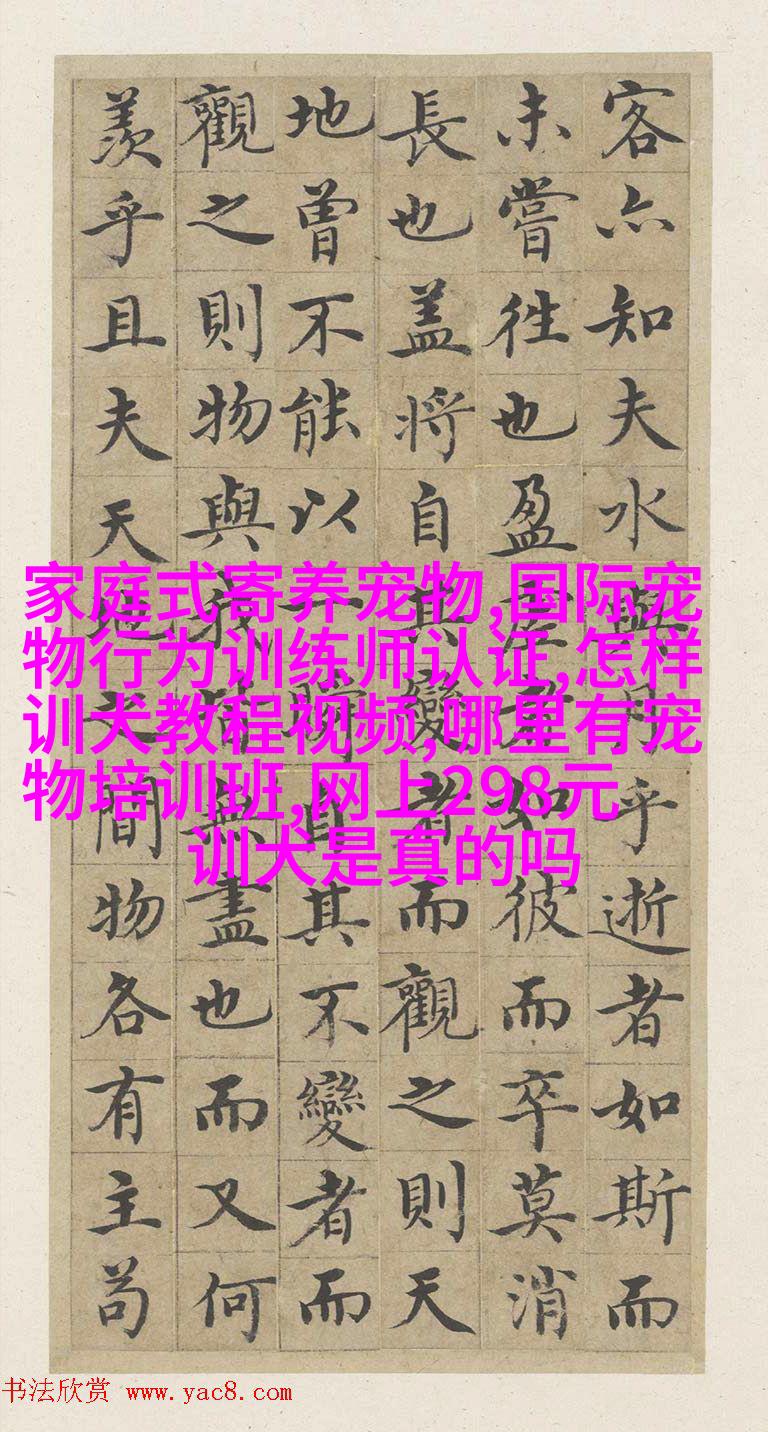 客亦知夫水與月乎逝者如斯而
未嘗往也盈虛者如彼而卒莫消
長也盖將自其變者而觀之則天
地曾不能以一瞬自其不變者而
觀之則物與我皆無盡也而又何
羨乎且夫天地之間物各有主苟
家庭式寄养宠物,国际宠
物行为训练师认证,怎样
训犬教程视频,哪里有宠
物培训班,网上298元
训犬是真的吗
书法欣赏 www.yac8.com